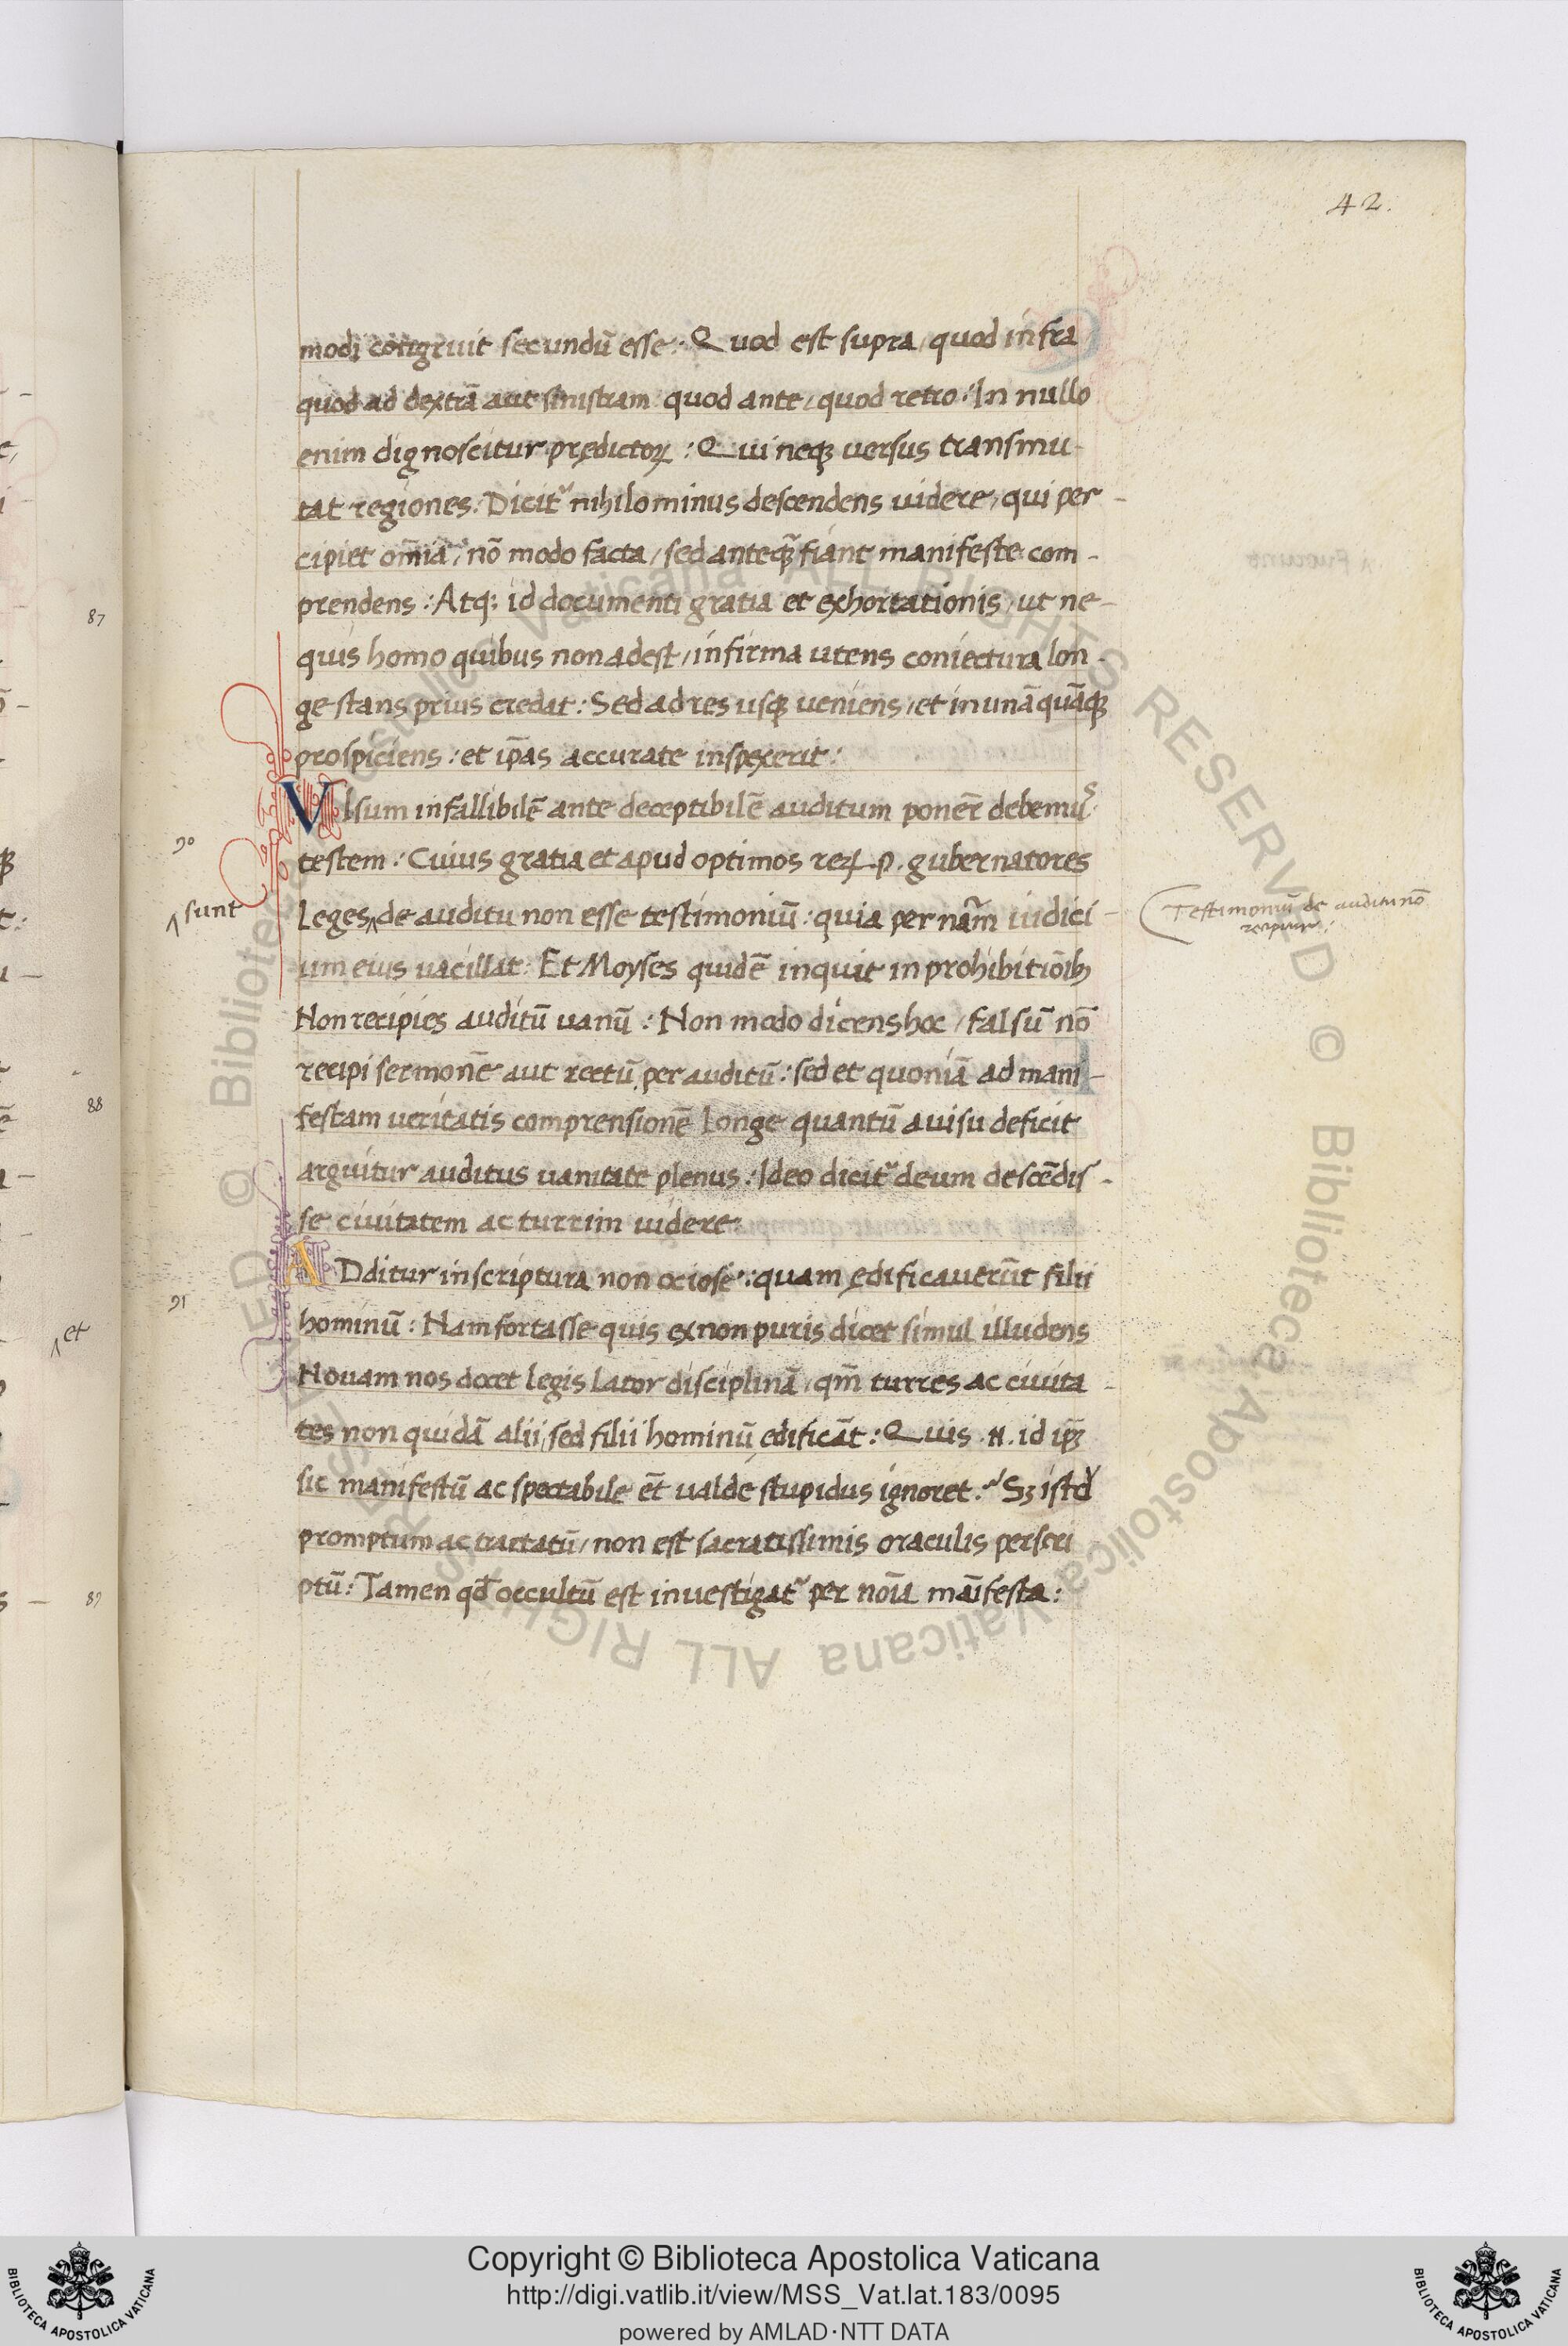 42.
modi congruit secundū esse: Quod est supra, quod infra
quod ad dextrā aut sinistram quod ante, quod retro: In nullo
enim dignoscitur prędictoꝝ: Qui neqꝫ uersus transmu-
tat regiones. Dicit᷑ nihilominus descendens uidere, qui per-
cipiet om̄ia, nō modo facta, sed anteqꝫ̄ fiant manifeste com-
prendens: Atqꝫ id documenti gratia et exhortationis, ut ne-
quis homo quibus non adest, infirma utens coniectura lon-
ge stans prius credat: Sed ad res usqꝫ ueniens, et in unā quāqꝫ
prospiciens: et ip̄as accurate inspexerit:
90
VIsum infallibilē ante deceptibilē auditum poner̄ debemuˢ.
testem: Cuius gratia et apud optimos reꝝ .p. gubernatores
‸sunt
Leges‸ de auditu non esse testimoniū: quia per nām iudici-
Testimoniū de auditu nō
recipitur:
um eius uacillat: Et Moyses quidē inquit in prohibitiōibꝫ
Non recipies auditū uanū: Non modo dicens hoc, falsū nō
recipi sermonē aut rectū per auditū: sed et quoniā ad mani-
festam ueritatis comprensionē Longe quantū a uisu deficit
arguitur auditus uanitate plenus: Ideo dicit᷑ deum descēdis-
se ciuitatem ac turrim uidere:
91
ADditur in scriptura non ociose: quam ędificauerūt filii
hominū: Nam fortasse quis ex non puris dicet simul illudens
Nouam nos docet legis Lator disciplinā, qm̄ turres ac ciuita-
tes non quidā alii, sed filii hominū ędificāt: Quis .N. id ip̄ꝫ
sic manifestū ac spectabile et̄ ualde stupidus ignoret: Sꝫ istd
promptum ac tractatū, non est sacratissimis oraculis perscri
ptū: Tamen qd̄ occultū est inuestigat᷑ per nōia māifesta:
87
88
‸et
89
Copyright © Biblioteca Apostolica Vaticana
http://digi.vatlib.it/view/MSS_Vat.lat.183/0095
powered by AMLAD·NTT DATA
BIBLIOTECA APOSTOLICA VATICANA
BIBLIOTECA APOSTOLICA VATICANA